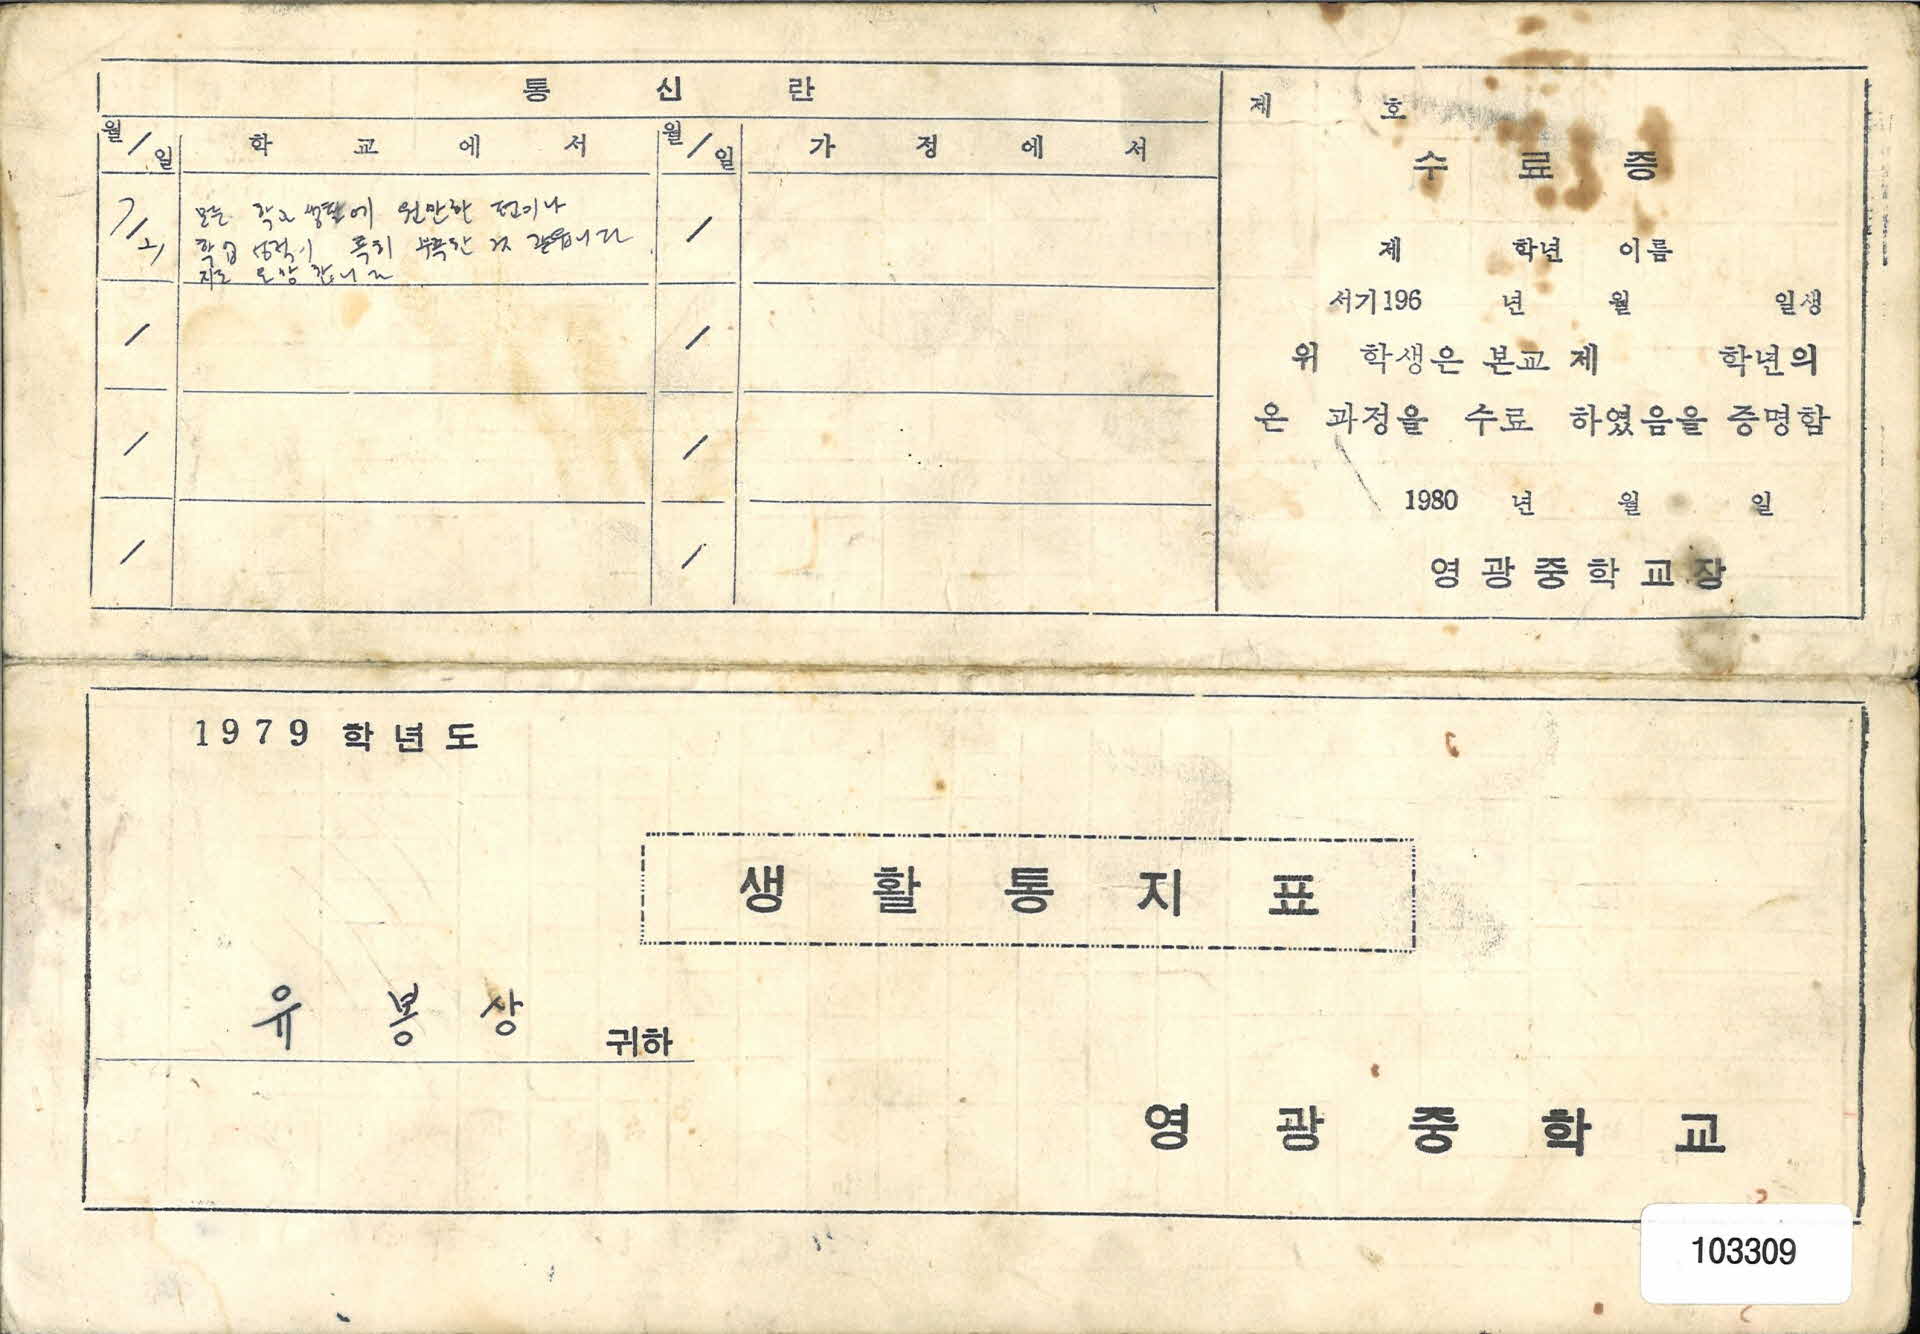 통 신 란
월/일 학 교 에 서 월/일 가 정 에 서
7/21 모든 학교 생활에 원만한 편이나 /
학급 성적이 특히 부족한 것 같습니다
지도 요망 합니다
/ /
/ /
/ /
제 호
수 료 증
제 학년 이름
서기196 년 월 일생
위 학생은 본교 제 학년의
은 과정을 수료 하였음을 증명함
1980 년 월 일
영 광 중 학 교 장
1979 학년도
생 활 통 지 표
유 봉 상 귀하
영 광 중 학 교
103309